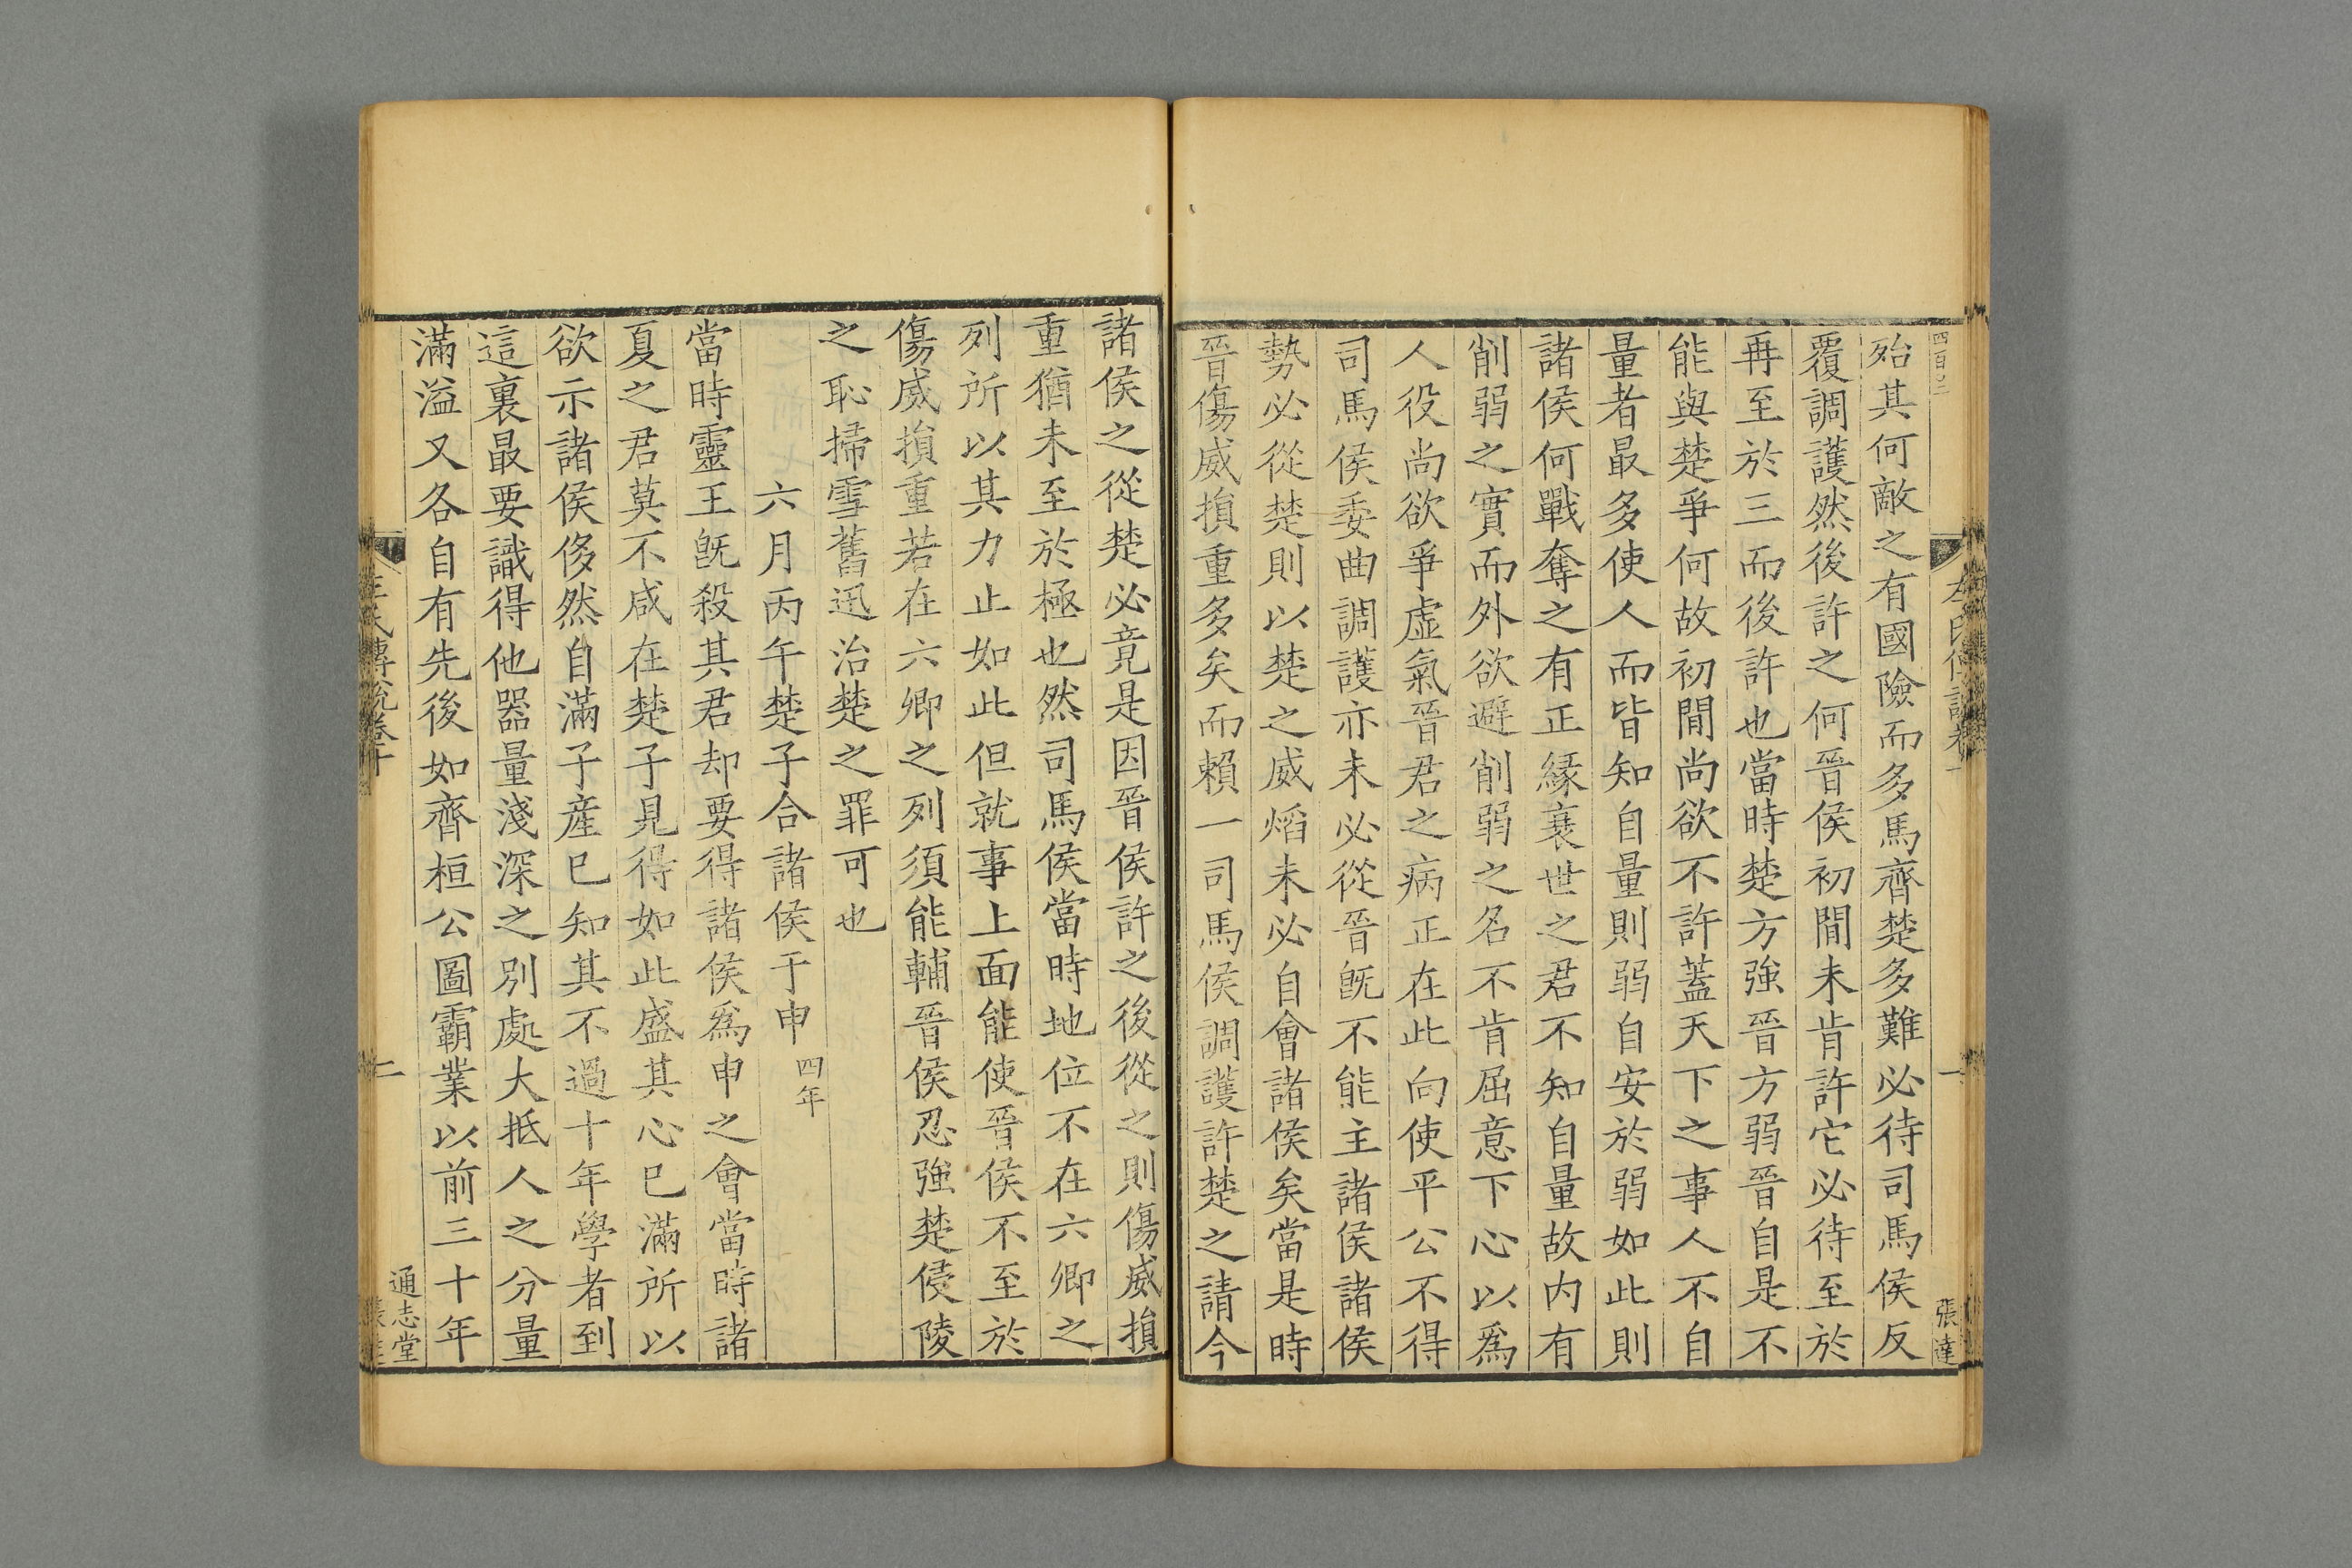 殆其何敵之有國險而多馬齊楚多難必待司馬侯反
覆調護然後許之何晉侯初間未肯許它必待至於
再至於三而後許也當時楚方強晉方弱晉自是不
能與楚爭何故初間尚欲不許蓋天下之事人不自
量者最多使人而皆知自量則弱自安於弱如此則
諸侯何戰奪之有正緣衰世之君不知自量故内有
削弱之實而外欲避削弱之名不肯屈意下心以爲
人役尚欲爭虛氣晉君之病正在此向使平公不得
司馬侯委曲調護亦未必從晉旣不能主諸侯諸侯
勢必從楚則以楚之威熖未必自會諸侯矣當是時
晉傷威損重多矣而賴一司馬侯調護許楚之請今
諸侯之從楚必竟是因晉侯許之後從之則傷威損
重猶未至於極也然司馬侯當時地位不在六卿之
列所以其力止如此但就事上面能使晉侯不至於
傷威損重若在六卿之列須能輔晉侯忍強楚侵陵
之恥掃雪舊迅治楚之罪可也
六月丙午楚子合諸侯于申四年
當時靈王旣殺其君却要得諸侯爲申之會當時諸
夏之君莫不咸在楚子見得如此盛其心已滿所以
欲示諸侯侈然自滿子産已知其不過十年學者到
這裏最要識得他器量淺深之別處大抵人之分量
滿溢又各自有先後如齊桓公圖霸業以前三十年
四百三
張達
左氏傳說卷十
一
左氏傳說卷十
二
通志堂